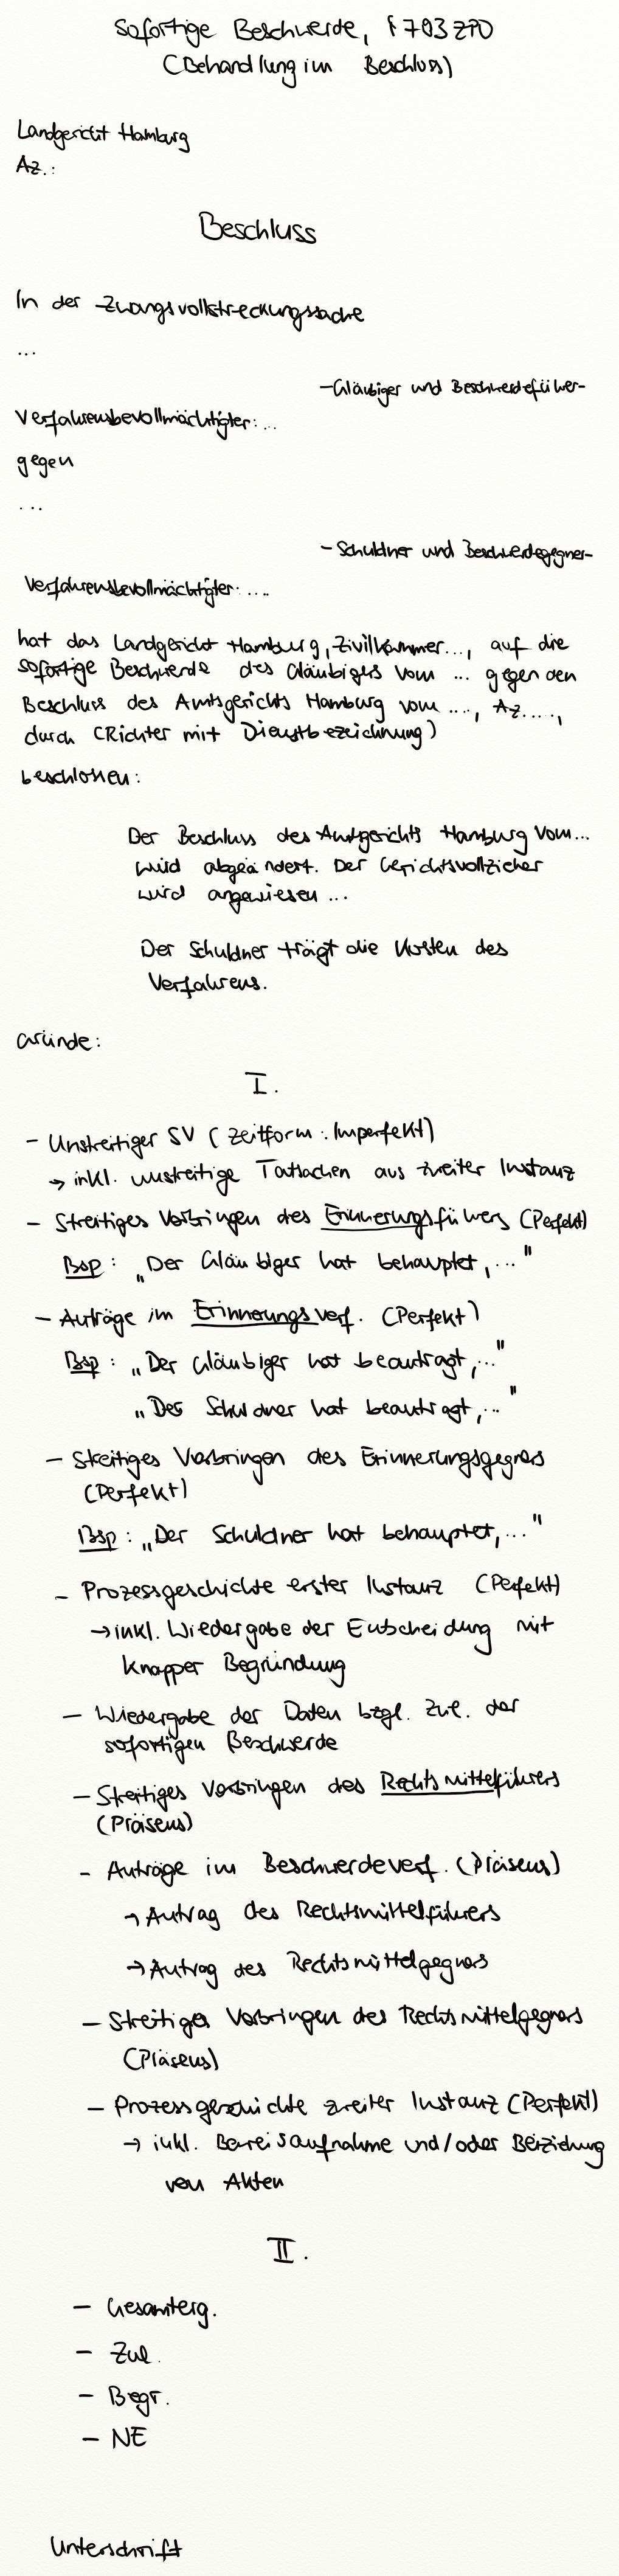 Sofortige Beschwerde, § 793 ZPO
(Behandlung im Beschluss)
Landgericht Hamburg
Az.:
Beschluss
In der Zwangsvollstreckungssache
...
-Gläubiger und Beschwerdeführer-
Verfahrensbevollmächtigter: ...
gegen
...
- Schuldner und Beschwerdegegner-
Verfahrensbevollmächtigter: ....
hat das Landgericht Hamburg, Zivilkammer..., auf die
sofortige Beschwerde des Gläubigers vom ... gegen den
Beschluss des Amtsgerichts Hamburg vom ..., Az....,
durch (Richter mit Dienstbezeichnung)
beschlossen:
Der Beschluss des Amtsgerichts Hamburg vom...
wird abgeändert. Der Gerichtsvollzieher
wird angewiesen ...
Der Schuldner trägt die Kosten des
Verfahrens.
Gründe:
I.
- Unstreitiger SV (Zeitform: Imperfekt)
→ inkl. unstreitige Tatsachen aus zweiter Instanz
- Streitiges Vorbringen des Erinnerungsführers (Perfekt)
Bsp: „Der Gläubiger hat behauptet,..."
- Anträge im Erinnerungsverf. (Perfekt)
Bsp: „Der Gläubiger hat beantragt,..."
„Der Schuldner hat beantragt,..."
- Streitiges Vorbringen des Erinnerungsgegners
(Perfekt)
Bsp: „Der Schuldner hat behauptet,..."
- Prozessgeschichte erster Instanz (Perfekt)
→ inkl. Wiedergabe der Entscheidung mit
knapper Begründung
- Wiedergabe der Daten bzgl. Zul. der
sofortigen Beschwerde
- Streitiges Vorbringen des Rechtsmittelführers
(Präsens)
- Anträge im Beschwerdeverf. (Präsens)
→ Antrag des Rechtsmittelführers
→ Antrag des Rechtsmittelgegners
- Streitiges Vorbringen des Rechtsmittelgegners
(Präsens)
- Prozessgeschichte zweiter Instanz (Perfekt)
→ inkl. Beweisaufnahme und/oder Beiziehung
von Akten
II.
- Gesamterg.
- Zul.
- Begr.
- NE
Unterschrift